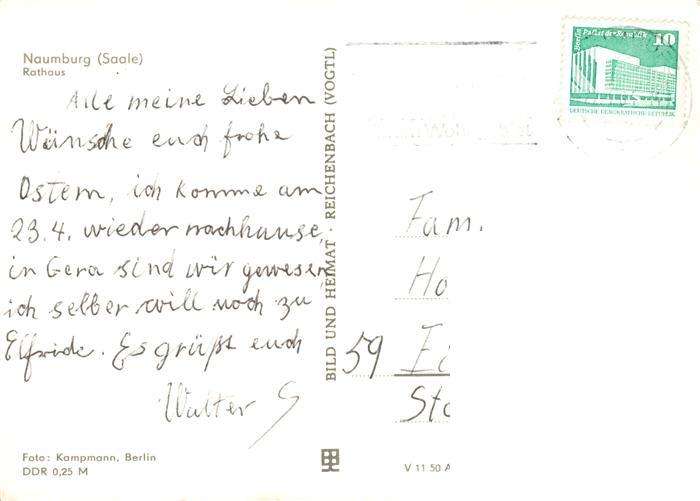 Naumburg (Saale)
Rathaus
Alle meine Lieben
Wünsche euch frohe
Ostern, ich komme am
23.4. wieder nachhause,
in Gera sind wir gewesen,
ich selber will noch zu
Elfride. Es grüßt euch
Walter S
Foto: Kampmann, Berlin
DDR 0,25 M
BILD UND HEIMAT · REICHENBACH (VOGTL)
V 11 50 A
Berlin Palast der Republik 10
DEUTSCHE DEMOKRATISCHE REPUBLIK
Fam.
Ho
59 Ei
Sto